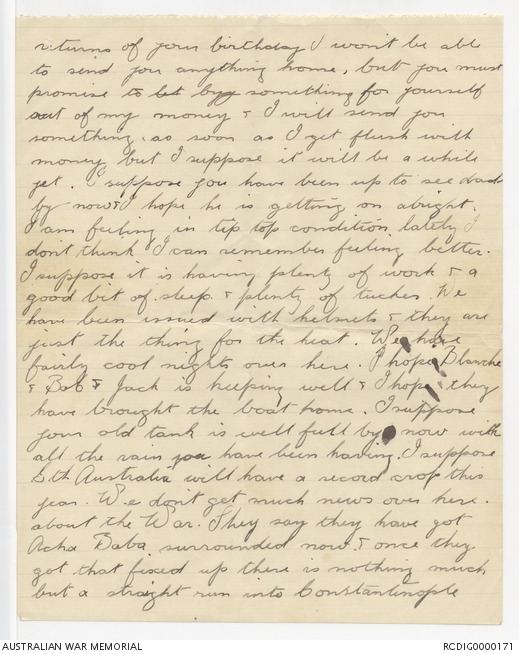 returns of your birthday I won't be able
to send you anything home, but you must
promise to let buy something for yourself
out of my money & I will send you
something, as soon as I get flush with
money but I suppose it will be a while
yet. I suppose you have been up to see dad
by now & I hope he is getting on alright.
I am feeling in tip top condition lately I
don't think I can remember feeling better.
I suppose it is having plenty of work & a
good bit of sleep & plenty of tucker. We
have been issued with helmets & they are
just the thing for the heat. We have
fairly cool nights over here. I hope Blanche
& Bob & Jack is keeping well & I hope they
have brought the boat home. I suppose
your old tank is well full by now with
all the rain you have been having. I suppose
Sth Australia will have a record crop this
year. We don't get much news over here.
about the War. They say they have got
Acha Baba surrounded now. & once they
got that fixed up there is nothing much
but a straight run into Constantinople
AUSTRALIAN WAR MEMORIAL
RCDIG0000171